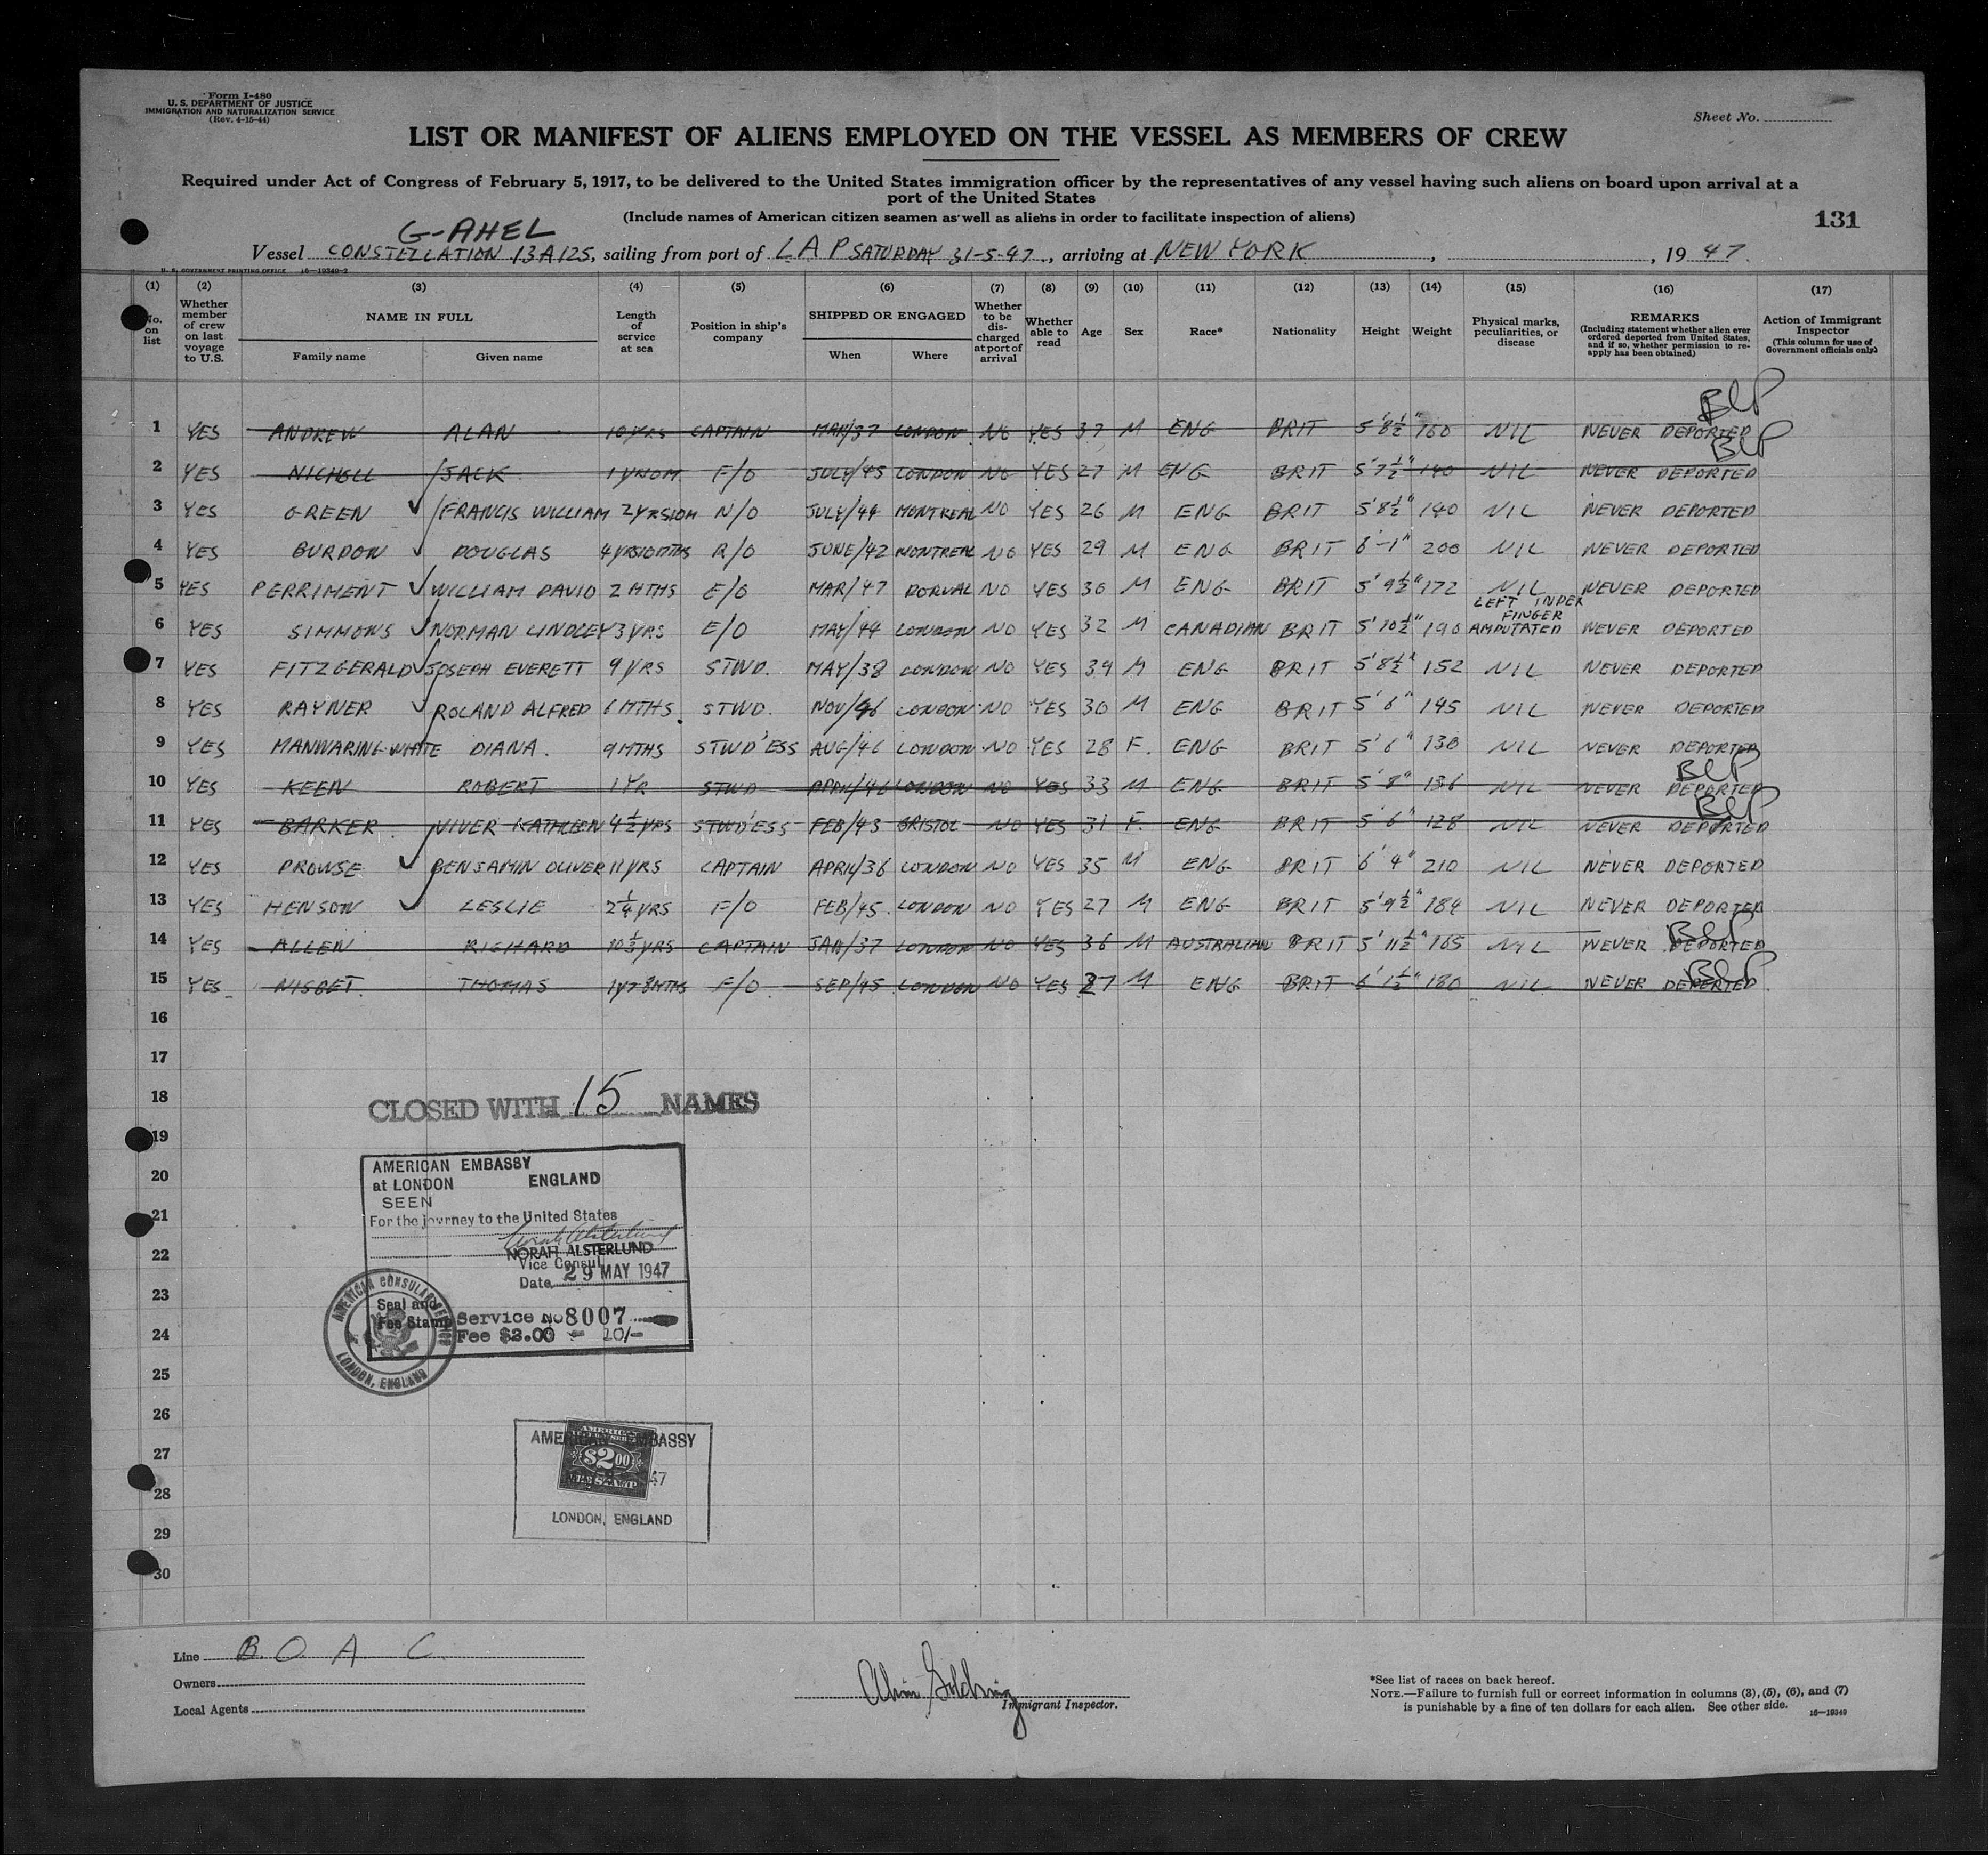 Form I-480
U. S. DEPARTMENT OF JUSTICE
IMMIGRATION AND NATURALIZATION SERVICE
(Rev. 4-15-44)
Sheet No.
LIST OR MANIFEST OF ALIENS EMPLOYED ON THE VESSEL AS MEMBERS OF CREW
Required under Act of Congress of February 5, 1917, to be delivered to the United States immigration officer by the representatives of any vessel having such aliens on board upon arrival at a
port of the United States
(Include names of American citizen seamen as well as aliens in order to facilitate inspection of aliens)
131
G-AHEL
Vessel CONSTELLATION 13A125, sailing from port of L A P SATURDAY 31-5-47, arriving at NEW YORK, , 19 47.
U. S. GOVERNMENT PRINTING OFFICE 16-19349-2
(1) (2) (3) (4) (5) (6) (7) (8) (9) (10) (11) (12) (13) (14) (15) (16) (17)
No. on list
Whether member of crew on last voyage to U.S.
NAME IN FULL
Family name
Given name
Length of service at sea
Position in ship's company
SHIPPED OR ENGAGED
When
Where
Whether to be discharged at port of arrival
Whether able to read
Age
Sex
Race*
Nationality
Height
Weight
Physical marks, peculiarities, or disease
REMARKS
(Including statement whether alien ever ordered deported from United States, and if so, whether permission to reapply has been obtained)
Action of Immigrant Inspector
(This column for use of Government officials only)
1 YES ANDREW ALAN 10 YRS CAPTAIN MAR/37 LONDON NO YES 37 M ENG BRIT 5'8½" 160 NIL NEVER DEPORTED BLP
2 YES NICHOLL JACK 1 YR 10M F/O JULY/45 LONDON NO YES 27 M ENG BRIT 5'7½" 140 NIL NEVER DEPORTED BLP
3 YES GREEN FRANCIS WILLIAM 2 YRS 10M N/O JULY/44 MONTREAL NO YES 26 M ENG BRIT 5'8½" 140 NIL NEVER DEPORTED
4 YES BURDON DOUGLAS 4 YRS 10 MTHS R/O JUNE/42 MONTREAL NO YES 29 M ENG BRIT 6'-1" 200 NIL NEVER DEPORTED
5 YES PERRIMENT WILLIAM DAVID 2 MTHS E/O MAR/47 DORVAL NO YES 30 M ENG BRIT 5'9½" 172 NIL NEVER DEPORTED
6 YES SIMMONS NORMAN LINDLEY 3 YRS E/O MAY/44 LONDON NO YES 32 M CANADIAN BRIT 5'10½" 190 LEFT INDEX FINGER AMPUTATED NEVER DEPORTED
7 YES FITZGERALD JOSEPH EVERETT 9 YRS STWD. MAY/38 LONDON NO YES 39 M ENG BRIT 5'8½" 152 NIL NEVER DEPORTED
8 YES RAYNER ROLAND ALFRED 6 MTHS. STWD. NOV/46 LONDON NO YES 30 M ENG BRIT 5'6" 145 NIL NEVER DEPORTED
9 YES MANWARING-WHITE DIANA. 9 MTHS STWD'ESS AUG/46 LONDON NO YES 28 F. ENG BRIT 5'6" 130 NIL NEVER DEPORTED
10 YES KEEN ROBERT 1 YR STWD APRIL/46 LONDON NO YES 33 M ENG BRIT 5'8" 136 NIL NEVER DEPORTED BLP
11 YES BARKER. VIVER KATHLEEN 4½ YRS STWD'ESS FEB/43 BRISTOL NO YES 31 F. ENG BRIT 5'6" 128 NIL NEVER DEPORTED BLP
12 YES PROWSE BENJAMIN OLIVER 11 YRS CAPTAIN APRIL/36 LONDON NO YES 35 M ENG BRIT 6'4" 210 NIL NEVER DEPORTED
13 YES HENSON LESLIE 2¼ YRS F/O FEB/45. LONDON NO YES 27 M ENG BRIT 5'9½" 184 NIL NEVER DEPORTED
14 YES ALLEN RICHARD 10⅓ YRS CAPTAIN JAN/37 LONDON NO YES 36 M AUSTRALIAN BRIT 5'11½" 165 NIL NEVER DEPORTED BLP
15 YES NISBET. THOMAS 1 YR 8 MTHS F/O SEP/45 LONDON NO YES 27 M ENG BRIT 6'1½" 180 NIL NEVER DEPORTED BLP
16
17
18
19
20
21
22
23
24
25
26
27
28
29
30
CLOSED WITH 15 NAMES
AMERICAN EMBASSY
at LONDON ENGLAND
SEEN
For the journey to the United States
NORAH ALSTERLUND
Vice Consul
Date 29 MAY 1947
Seal and
Fee Stamp
Service No 8007
Fee $2.00 = 10/-
AMERICAN CONSULAR SERVICE
LONDON, ENGLAND
AMERICAN EMBASSY
$2.00
FEE STAMP
47
LONDON, ENGLAND
Line B. O. A. C.
Owners
Local Agents
Immigrant Inspector.
*See list of races on back hereof.
NOTE.—Failure to furnish full or correct information in columns (3), (5), (6), and (7)
is punishable by a fine of ten dollars for each alien. See other side.
16—19349